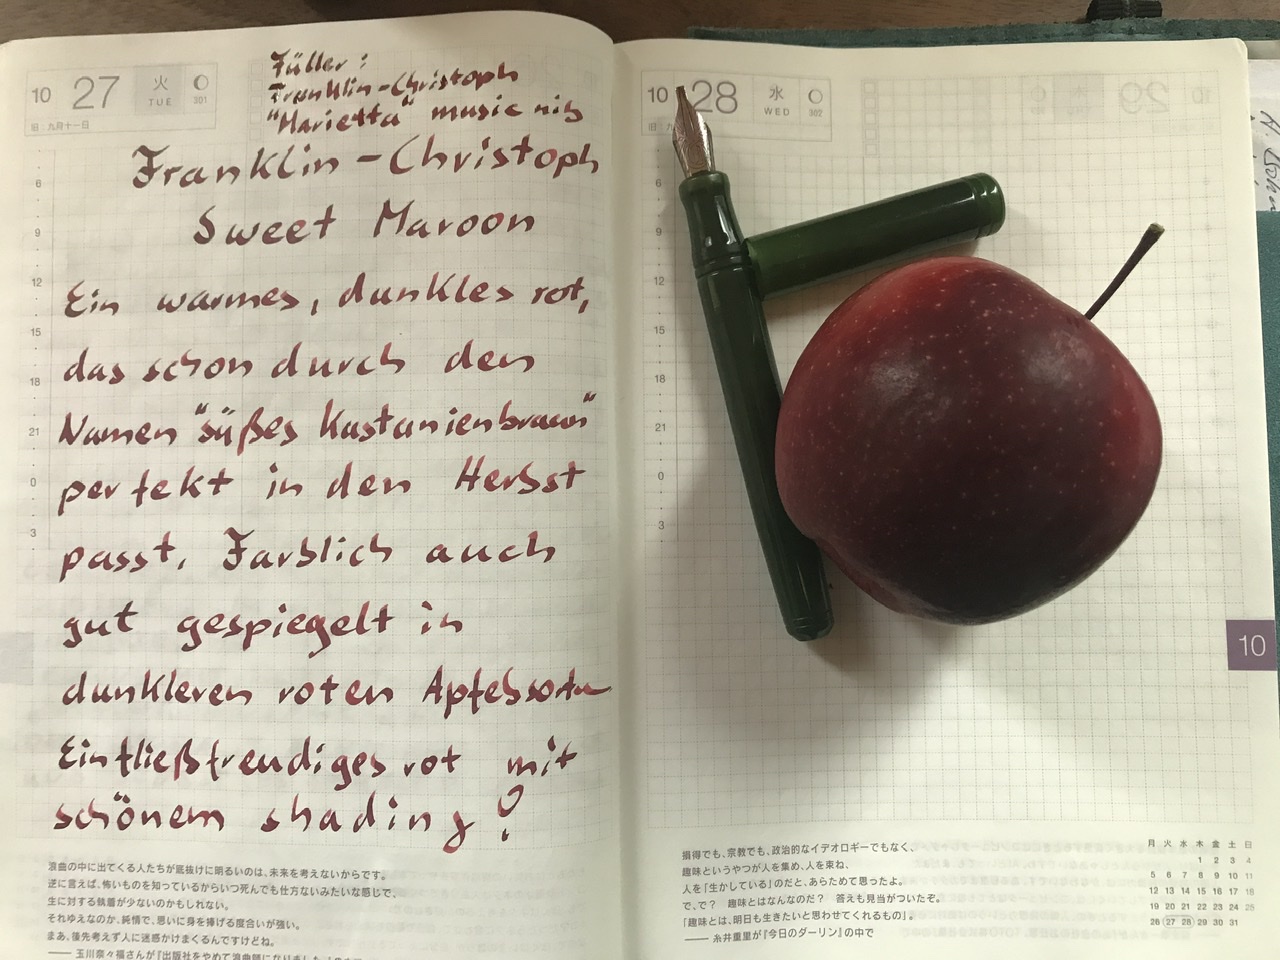 10 27 火 TUE 301
旧:九月十一日
Füller:
Franklin-Christoph
"Marietta" music nib
Franklin-Christoph
Sweet Maroon
Ein warmes, dunkles rot,
das schon durch den
Namen "süßes Kastanienbraun"
perfekt in den Herbst
passt. Farblich auch
gut gespiegelt in
dunkleren roten Apfelsorten
Ein fließfreudiges rot mit
schönem shading!
6
9
12
15
18
21
0
3
浪曲の中に出てくる人たちが底抜けに明るいのは、未来を考えないからです。
逆に言えば、怖いものを知っているからいつ死んでも仕方ないみたいな感じで、
生に対する執着が少ないのかもしれない。
それゆえなのか、純情で、思いに身を捧げる度合いが強い。
まあ、後先考えず人に迷惑かけまくるんですけどね。
―― 玉川奈々福さんが『出版社をやめて浪曲師になりました
10 28 水 WED 302
旧:九
6
9
12
15
18
21
0
3
10
損得でも、宗教でも、政治的なイデオロギーでもなく、
趣味というやつが人を集め、人を束ね、
人を「生かしている」のだと、あらためて思ったよ。
で、で? 趣味とはなんなのだ? 答えも見当がついたぞ。
「趣味とは、明日も生きたいと思わせてくれるもの」。
―― 糸井重里が『今日のダーリン』の中で
月 火 水 木 金 土 日
1 2 3 4
5 6 7 8 9 10 11
12 13 14 15 16 17 18
19 20 21 22 23 24 25
26 27 28 29 30 31